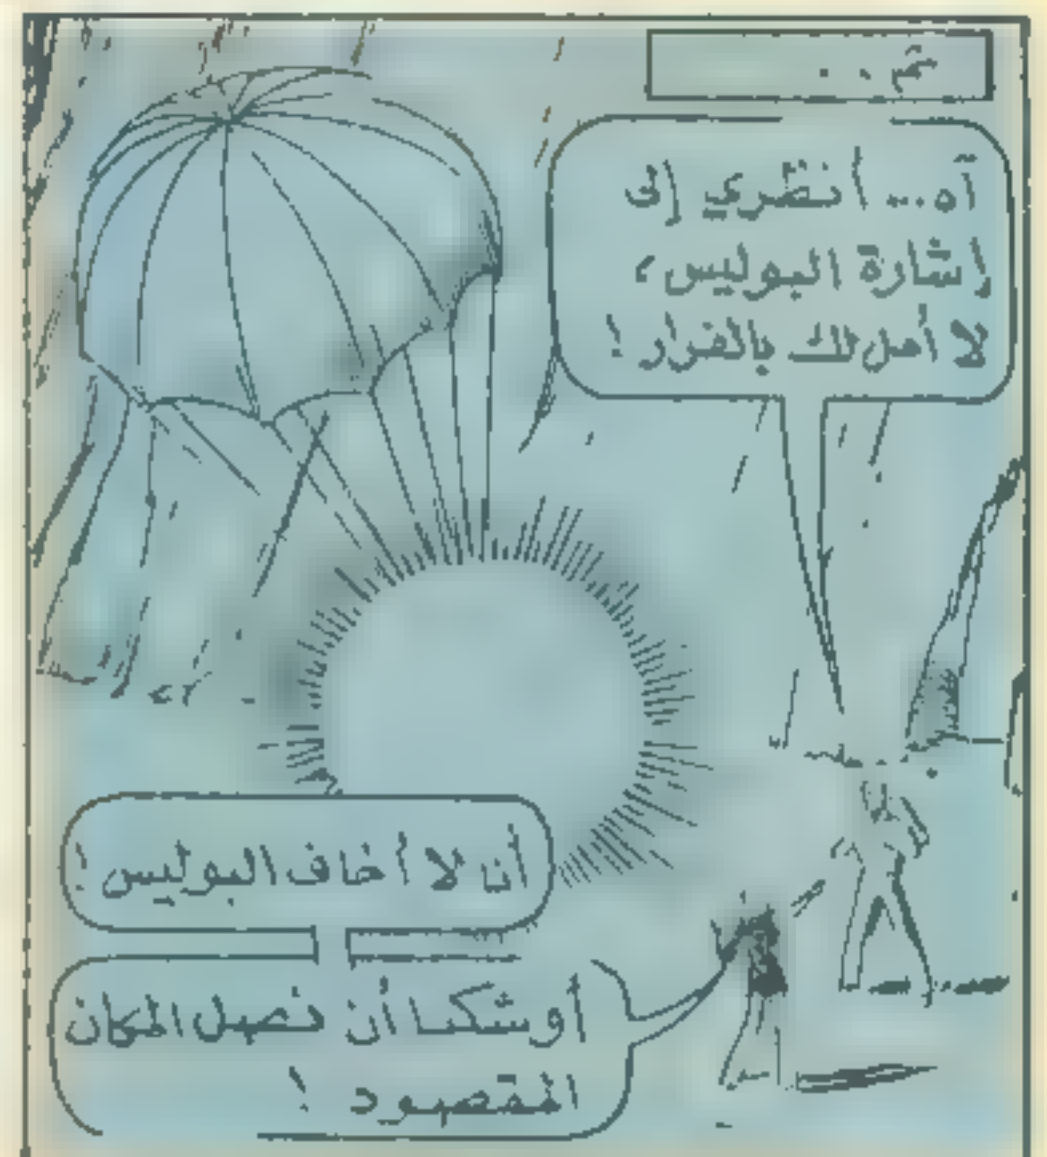 ثم . .
آه... أنظري إلى
إشارة البوليس،
لا أمل لك بالفرار!
أنا لا أخاف البوليس!
أوشكنا أن نصل المكان
المقصود!